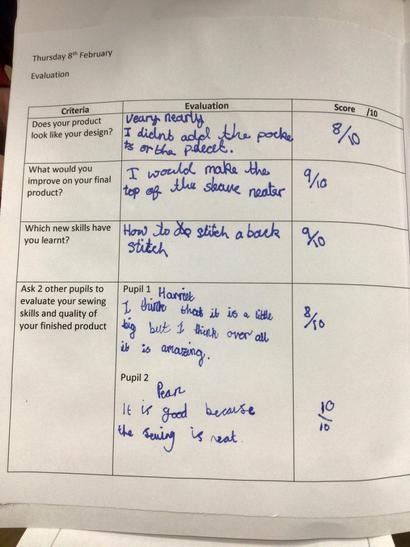 Thursday 8th February
Evaluation
Criteria
Evaluation
Score /10
Does your product
look like your design?
Veary nearly
I didnt add the pocke
ts or the
8/10
What would you
improve on your final
product?
I would make the
top of the sleave neater
9/10
Which new skills have
you learnt?
How to do stitch a back
stitch
9/10
Ask 2 other pupils to
evaluate your sewing
skills and quality of
your finished product
Pupil 1 Harriet
I think that it is a little
big but I think over all
it is amazing.
8/10
Pupil 2
Pearl
It is good because
the sewing is neat.
10
10